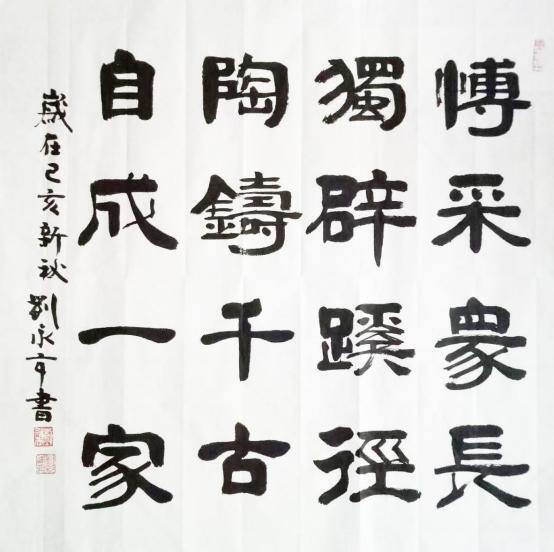 愽采眾長
獨辟蹊徑
陶鑄千古
自成一家
歲在己亥新秋劉永亨書